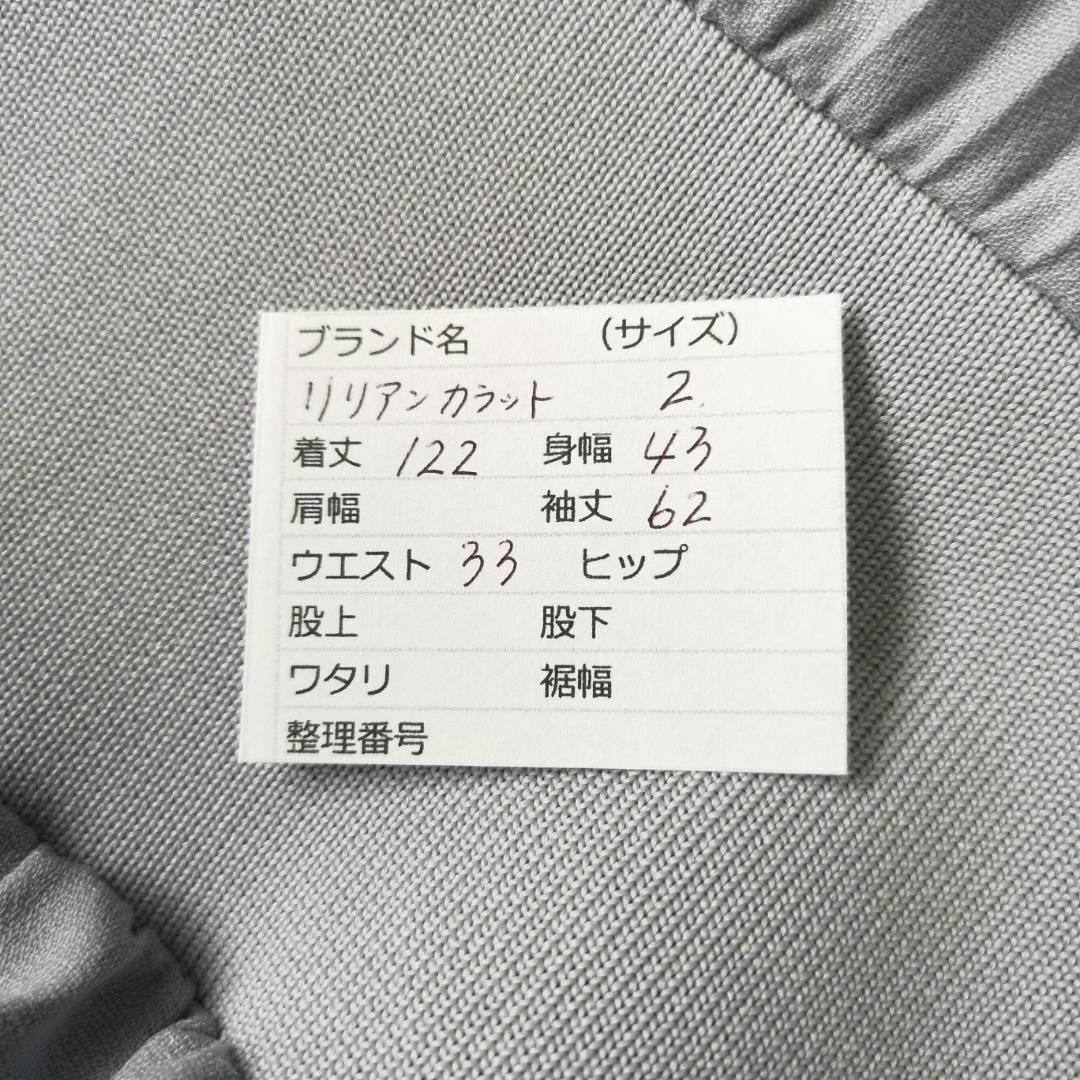 ブランド名 （サイズ）
リリアンカラット 2.
着丈 122 身幅 43
肩幅 袖丈 62
ウエスト 33 ヒップ
股上 股下
ワタリ 裾幅
整理番号